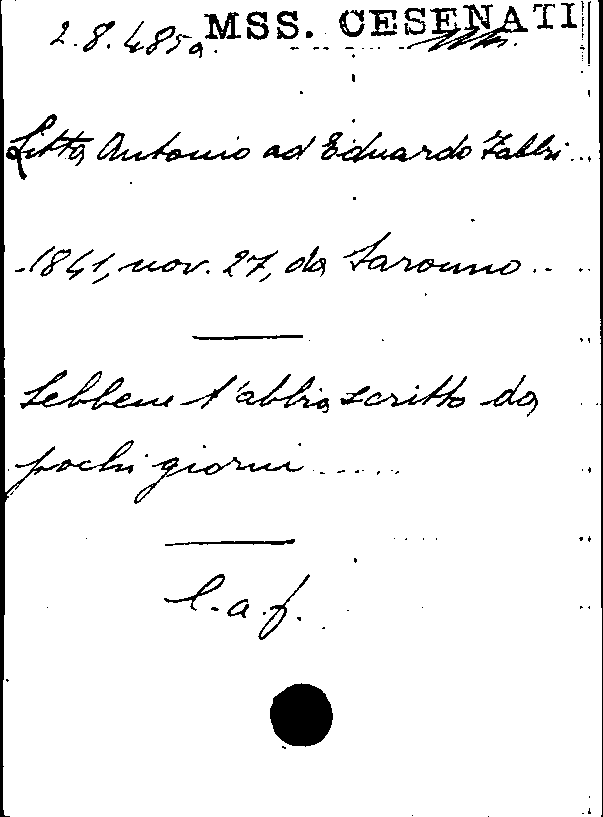 MSS. CESENATI
2.8.485a.
Litta Antonio ad Eduardo Fabbri
1841, nov. 27, da Saronno
Sebbene t'abbia scritto da
pochi giorni.....
l.a.f.